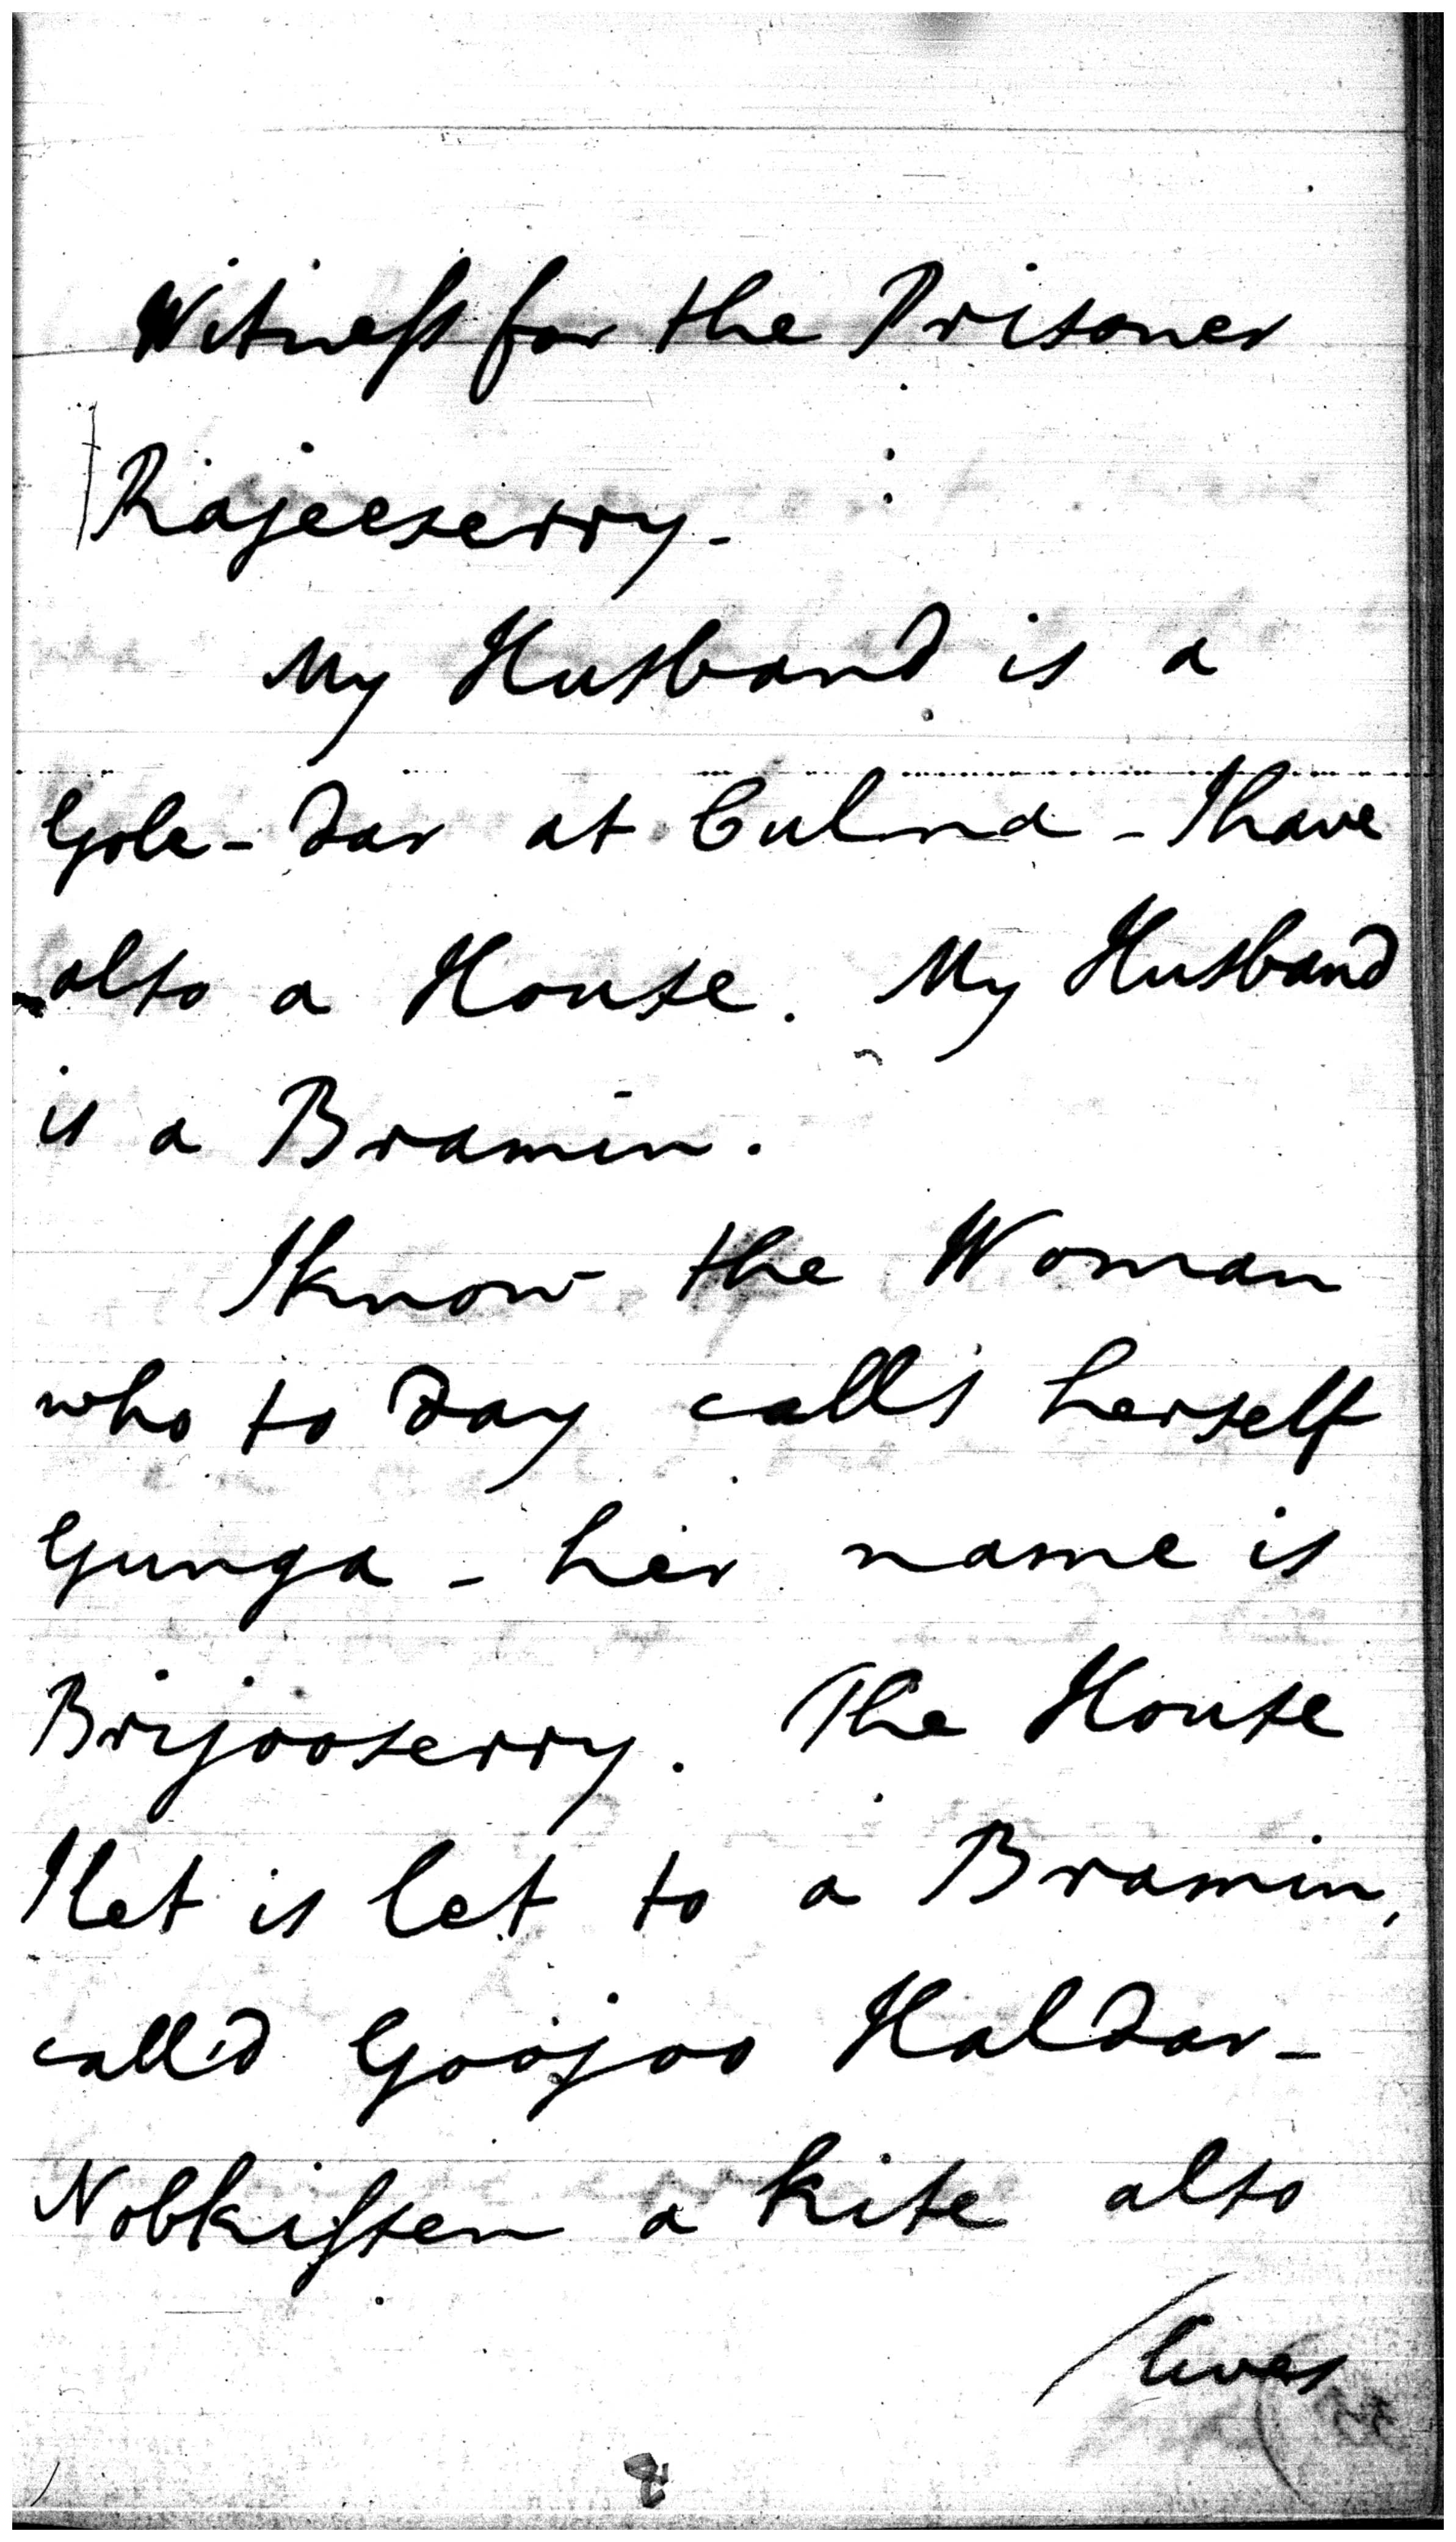 Witness for the Prisoner
Rajeeserry -
My Husband is a
Gole - dar at Culna - I have
also a House. My Husband
is a Bramin.
I know the Woman
who to day calls herself
Gunga - her name is
Brijooserry. The House
I let is let to a Bramin,
call'd Goojoo Haldar -
Nobkissen a kite also
/ lives